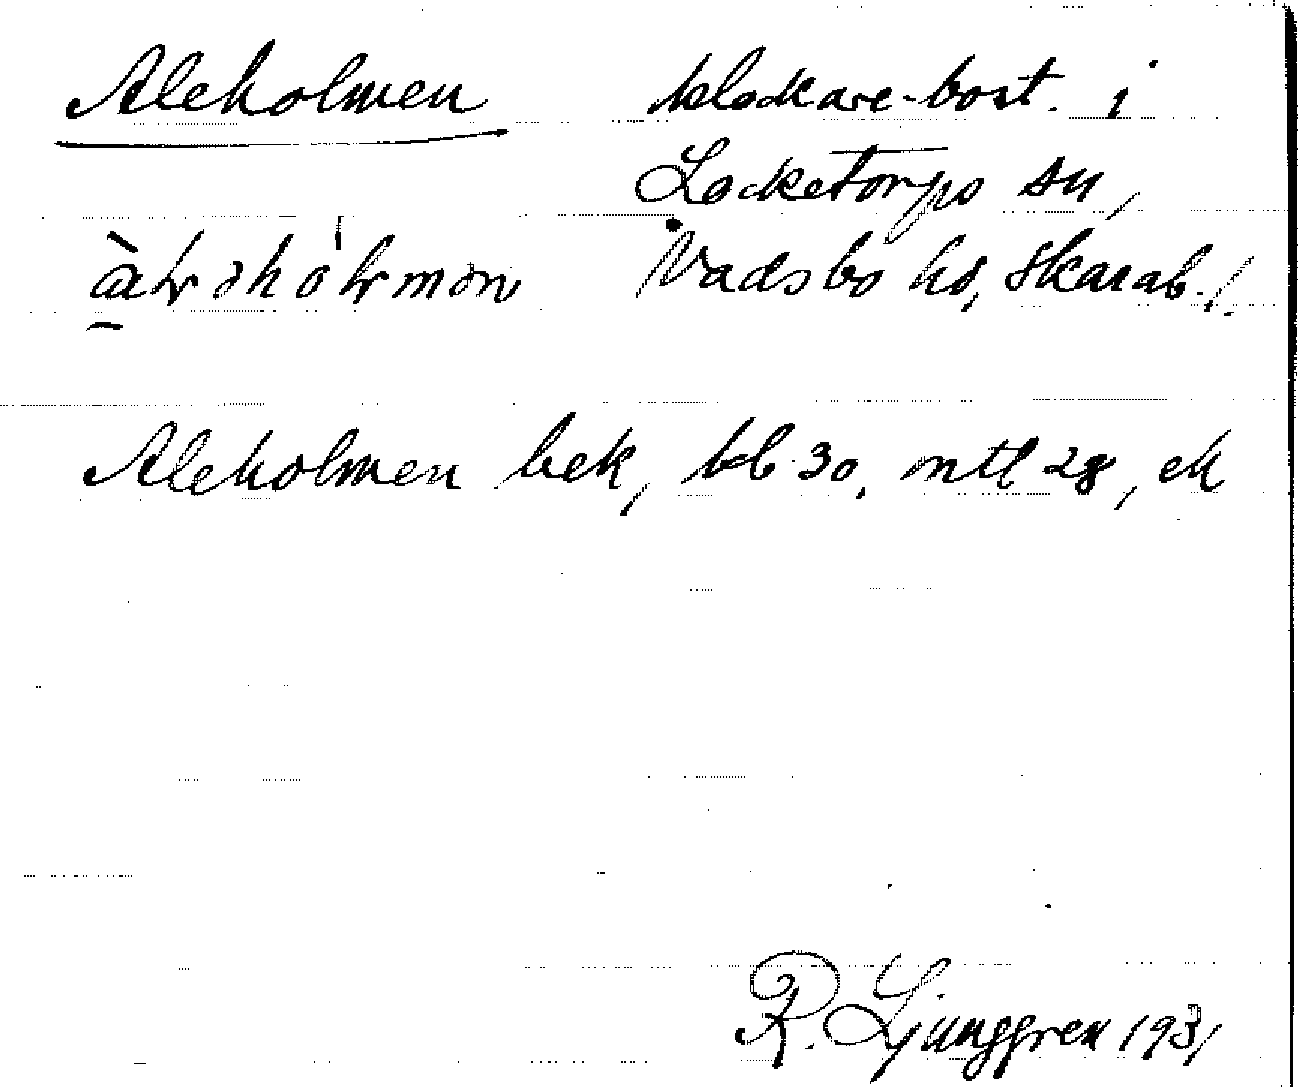 Aleholmen klockare-bost. i
Locketorps sn,
Vadsbo hd, Skarab. l.
Aleholmen bek, bl 30, mtl 28, ek
R. Ljunggren 1931